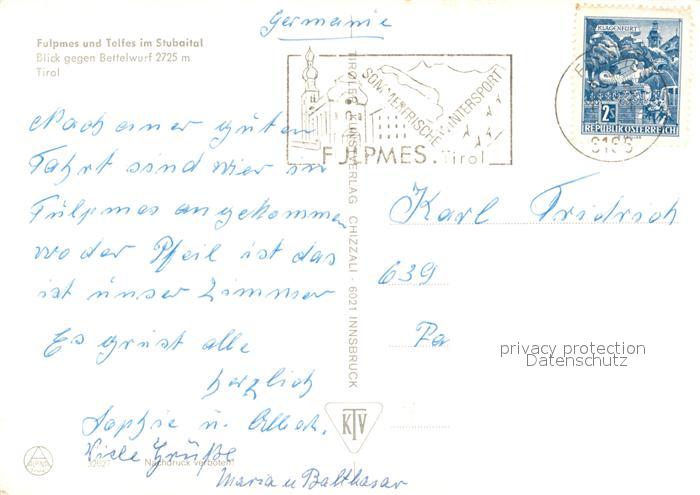 Germanie
Fulpmes und Telfes im Stubaital
Blick gegen Bettelwurf 2725 m
Tirol
Nach einer guten
Fahrt sind wier in
Fülpmes angekommen
wo der Pfeil ist das
ist unser Zimmer
Es grüst alle
herzlich
Sophie u.
Viele Grüße
Maria u Balthasar
32627 Nachdruck verboten!
TIROLER KUNSTVERLAG CHIZZALI · 6021 INNSBRUCK
KTV
SOMMERFRISCHE WINTERSPORT
FULPMES. Tirol
KLAGENFURT
2S
REPUBLIK ÖSTERREICH
Karl Fridrich
639
Fa
privacy protection
Datenschutz